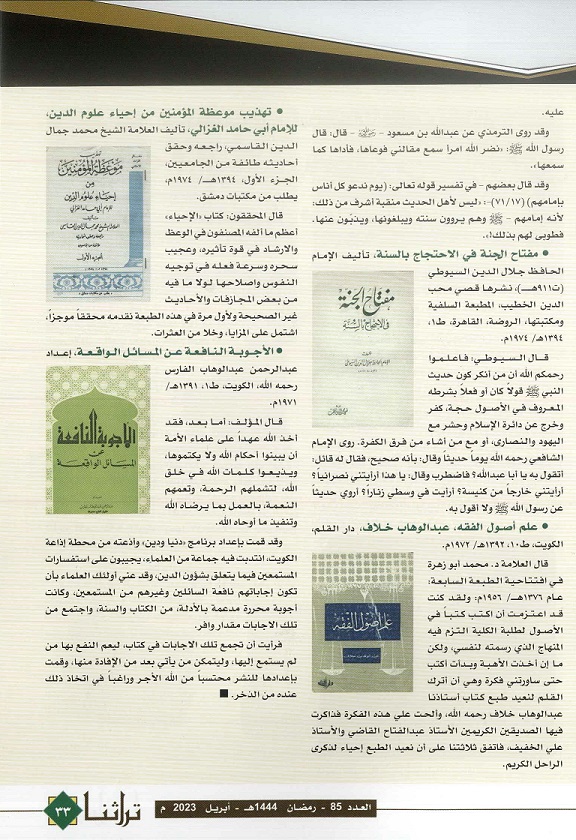 عليه.
وقد روى الترمذي عن عبدالله بن مسعود - رضي الله عنه - قال: قال
رسول الله ﷺ: نضر الله امرأ سمع مقالتي فوعاها، فأداها كما
سمعها».
وقد قال بعضهم - في تفسير قوله تعالى: (يوم ندعو كل أناس
بإمامهم) (٧١/١٧)-: «ليس لأهل الحديث منقبة أشرف من ذلك:
لأنه إمامهم - ﷺ وهم يروون سنته ويبلغونها، ويذبّون عنها.
فطوبى لهم بذلك!».
• مفتاح الجنة في الاحتجاج بالسنة، تأليف الإمام
الحافظ جلال الدين السيوطي
(ت٩١١هـ)، نشرها قصي محب
الدين الخطيب، المطبعة السلفية
ومكتبتها، الروضة، القاهرة، ط١،
١٣٩٤هـ/ ١٩٧٤م.
قال السيوطي: فاعلموا
رحمكم الله أن من أنكر كون حديث
النبي ﷺ قولاً كان أو فعلاً بشرطه
المعروف في الأصول حجة، كفر
وخرج عن دائرة الإسلام وحشر مع
اليهود والنصارى، أو مع من أشاء من فرق الكفرة. روى الإمام
الشافعي رحمه الله يوماً حديثاً وقال: بأنه صحيح، فقال له قائل:
أتقول به يا أبا عبدالله؟ فاضطرب وقال: يا هذا أرأيتني نصرانياً؟
أرأيتني خارجاً من كنيسة؟ أرأيت في وسطي زناراً؟ أروي حديثاً
عن رسول الله ﷺ ولا أقول به.
• علم أصول الفقه، عبدالوهاب خلاف، دار القلم،
الكويت، ط١٠، ١٣٩٢هـ/ ١٩٧٢م.
قال العلامة د. محمد أبو زهرة
في افتتاحية الطبعة السابعة:
عام ١٣٧٦هـ/ ١٩٥٦م: ولقد كنت
قد اعتزمت أن أكتب كتباً في
الأصول لطلبة الكلية ألتزم فيه
المنهاج الذي رسمته لنفسي، ولكن
ما إن أخذت الأهبة وبدأت أكتب
حتى ساورتني فكرة وهي أن أترك
القلم لنعيد طبع كتاب أستاذنا
عبدالوهاب خلاف رحمه الله، وألحت علي هذه الفكرة فذاكرت
فيها الصديقين الكريمين الأستاذ عبدالفتاح القاضي والأستاذ
علي الخفيف، فاتفق ثلاثتنا على أن نعيد الطبع إحياء لذكرى
الراحل الكريم.
مفتاح الجنة
في الاحتجاج بالسنة
علم أصول الفقه
• تهذيب موعظة المؤمنين من إحياء علوم الدين،
للإمام أبي حامد الغزالي، تأليف العلامة الشيخ محمد جمال
الدين القاسمي، راجعه وحقق
أحاديثه طائفة من الجامعيين،
الجزء الأول، ١٣٩٤هـ/ ١٩٧٤م،
يطلب من مكتبات دمشق.
قال المحققون: كتاب «الإحياء»،
أعظم ما ألفه المصنفون في الوعظ
والإرشاد في قوة تأثيره، وعجيب
سحره وسرعة فعله في توجيه
النفوس وإصلاحها لولا ما فيه
من بعض المجازفات والأحاديث
غير الصحيحة ولأول مرة في هذه الطبعة نقدمه محققاً موجزاً،
اشتمل على المزايا، وخلا من العثرات.
• الأجوبة النافعة عن المسائل الواقعة، إعداد
عبدالرحمن عبدالوهاب الفارس
رحمه الله، الكويت، ط١، ١٣٩١هـ/
١٩٧١م.
قال المؤلف: أما بعد، فقد
أخذ الله عهداً على علماء الأمة
أن يبينوا أحكام الله ولا يكتموها،
ويذيعوا كلمات الله في خلق
الله، لتشملهم الرحمة، وتعمهم
النعمة، بالعمل بما يرضاه الله
وتنفيذ ما أوحاه الله.
وقد قمت بإعداد برنامج «دنيا ودين» وأذعته من محطة إذاعة
الكويت، انتدبت فيه جماعة من العلماء، يجيبون على استفسارات
المستمعين فيما يتعلق بشؤون الدين، وقد عني أولئك العلماء بأن
تكون إجاباتهم نافعة السائلين وغيرهم من المستمعين، وكانت
أجوبة محررة مدعمة بالأدلة، من الكتاب والسنة، واجتمع من
تلك الاجابات مقدار وافر.
فرأيت أن تجمع تلك الاجابات في كتاب، ليعم النفع بها من
لم يستمع إليها، وليتمكن من يأتي بعد من الإفادة منها، وقمت
بإعدادها للنشر محتسباً من الله الأجر وراغباً في اتخاذ ذلك
عنده من الذخر. ■
موعظة المؤمنين
من
إحياء علوم الدين
الجزء الأول
الأجوبة النافعة
عن
المسائل الواقعة
العدد 85 - رمضان 1444هـ - أبريل 2023 م
تراثنا
٣٣